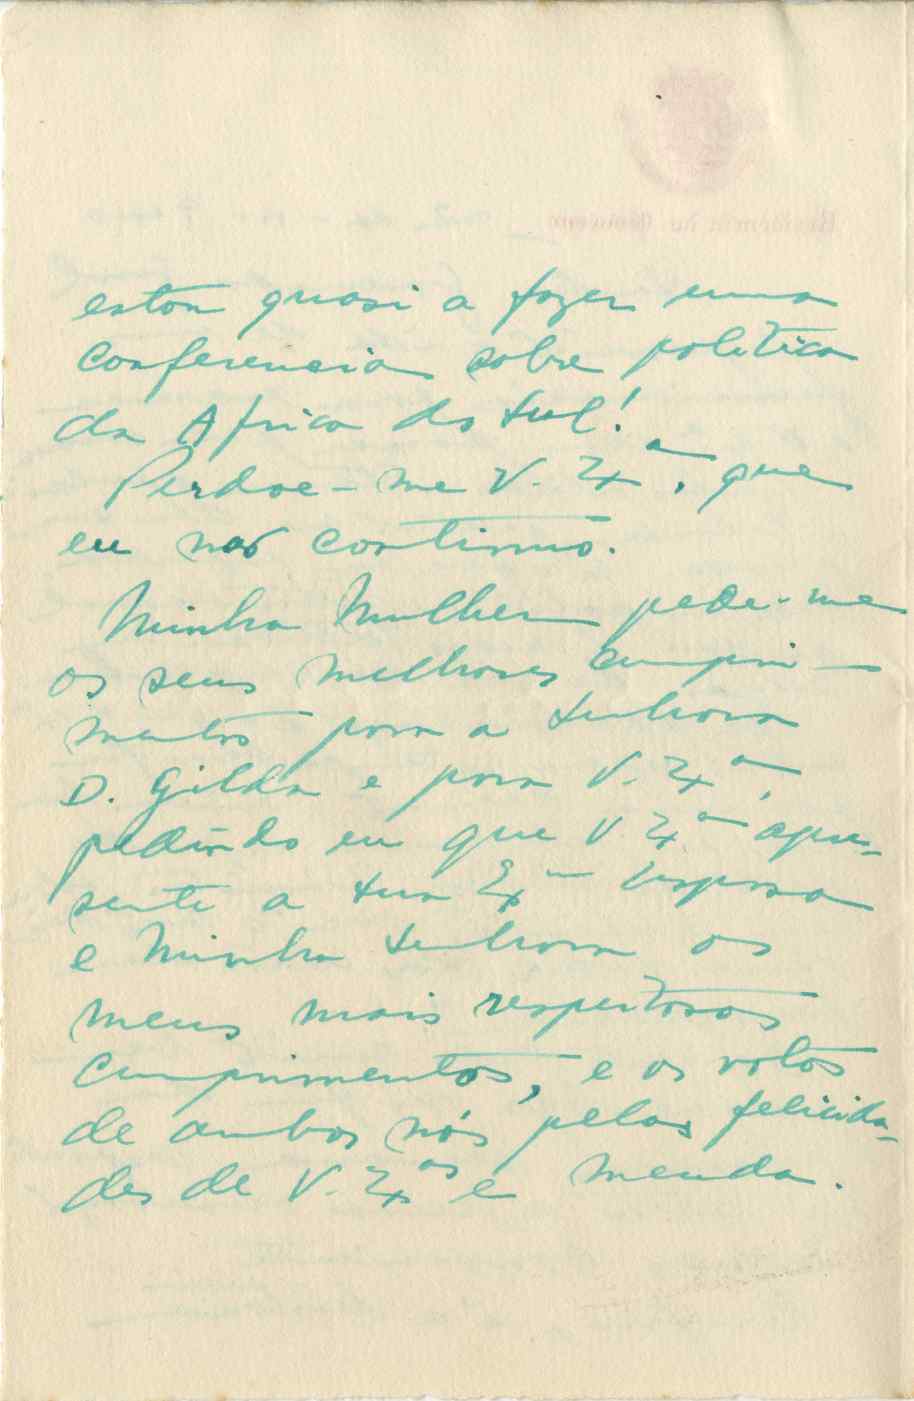 estou quasi a fazer uma
conferencia sobre politica
da Africa do Sul!
Perdoe-me V. Exª, que
eu não continuo.
Minha Mulher pede-me
os seus melhores cumpri-
mentos para a Senhora
D. Gilda e para V. Exª,
pedindo eu que V. Exª apre-
sente a Sua Exmª Esposa
e Minha Senhora os
meus mais respeitosos
cumprimentos, e os votos
de ambos nós pelas felicida-
des de V. Exªs e